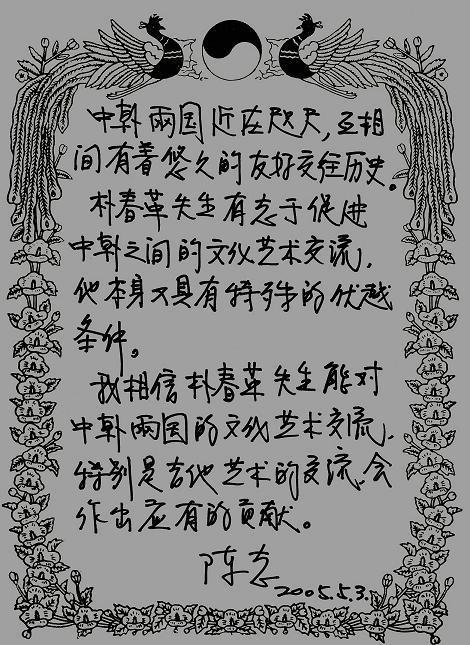 中韩两国近在咫尺，互相
间有着悠久的友好交往历史。
朴春革先生有志于促进
中韩之间的文化艺术交流，
他本身又具有特殊的优越
条件。
我相信朴春革先生能对
中韩两国的文化艺术交流，
特别是吉他艺术的交流，会
作出应有的贡献。
陈志
2005.5.3.